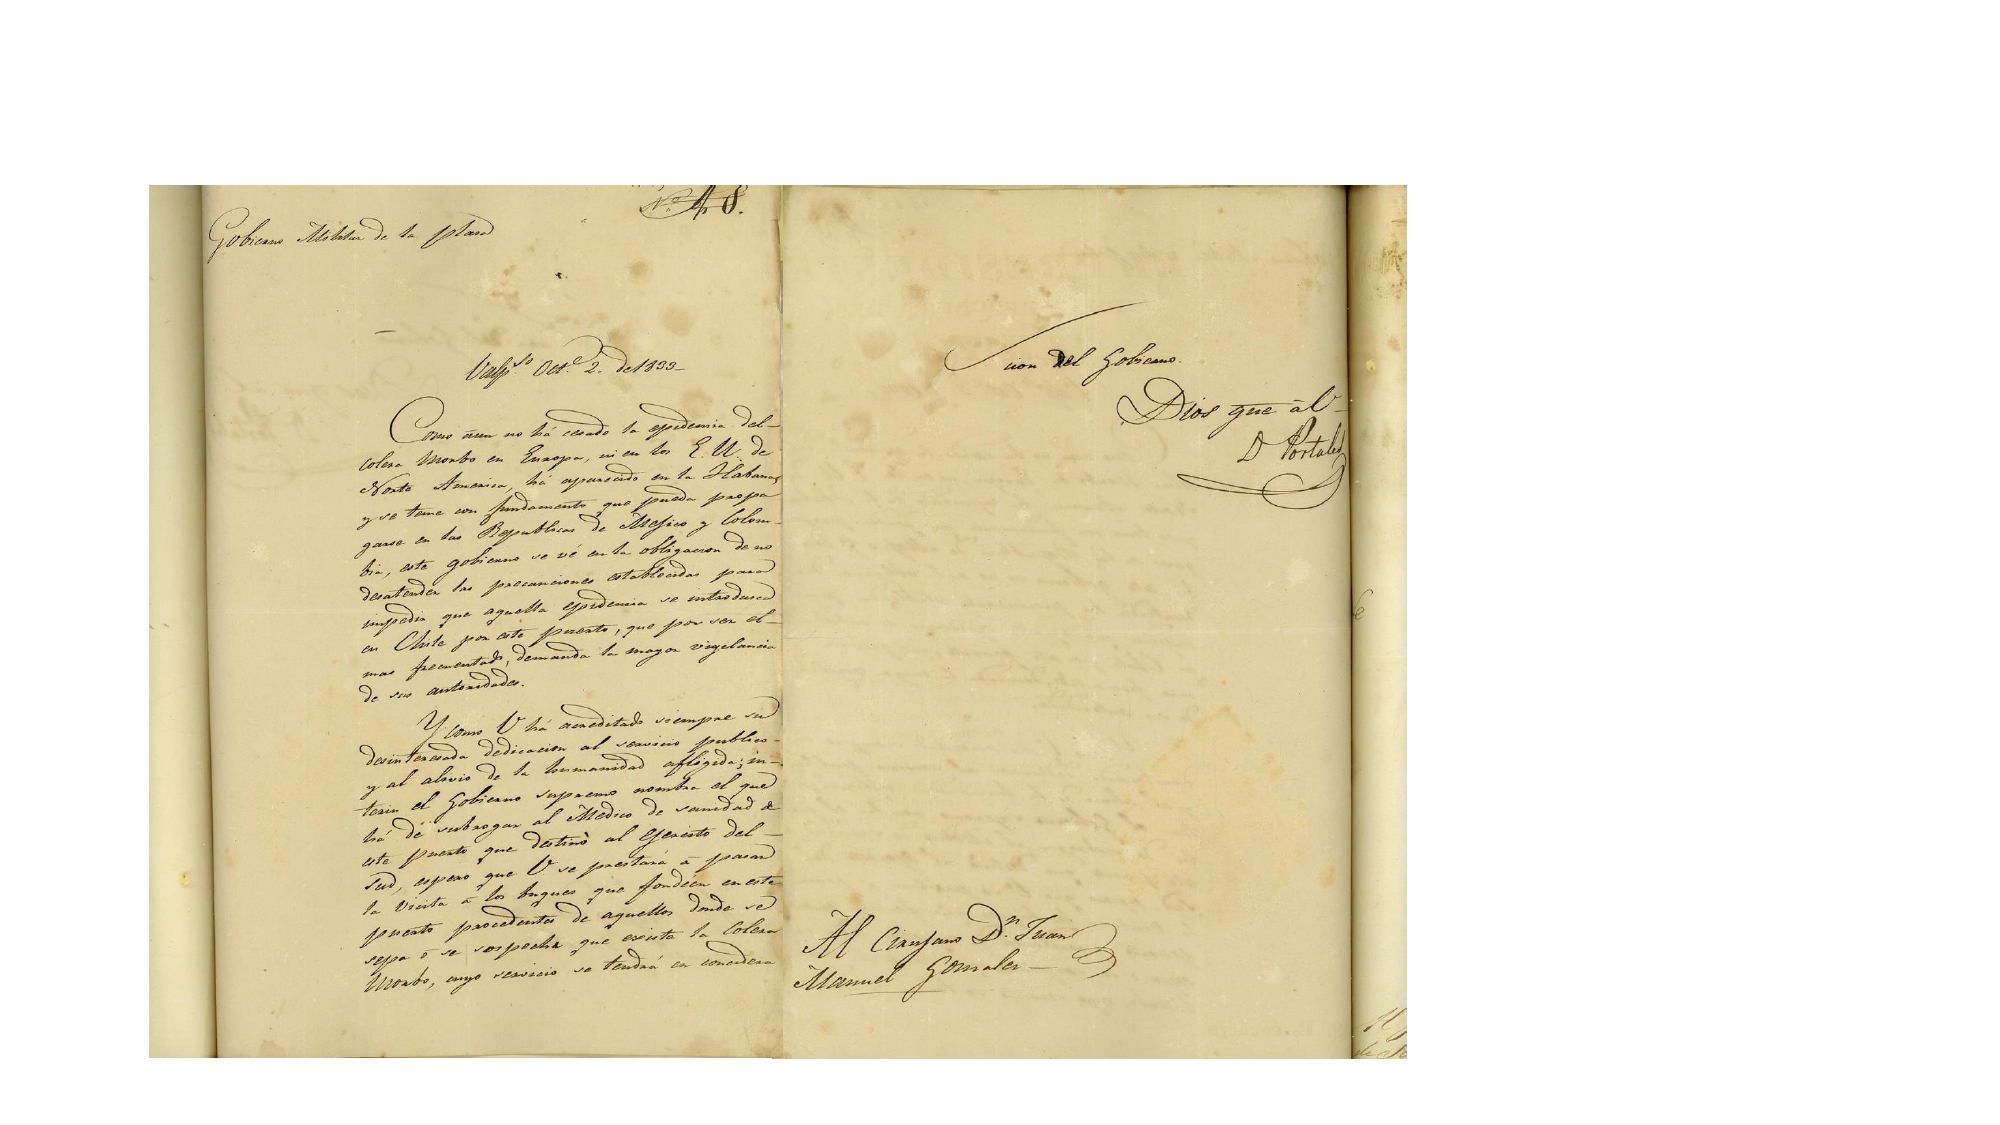 Nº 48.
Gobierno Militar de la plaza
Valpso. Octe. 2. de 1833-
Como aun no há cesado la epidemia del-
colera Morbo en Europa, ni en los E. U. de
Norte America, há aparecido en la Habana,
y se teme con fundamento que pueda propa
garse en las Republicas de Mejico y Colom-
bia, este gobierno se vé en la obligacion de no
desatender las precauciones establecidas para
impedir que aquella epidemia se introdusca
en Chile por este puerto, que por ser el-
mas frecuentado, demanda la mayor vigelancia
de sus autoridades.
Y como V há acreditado siempre su
desinteresada dedicacion al servicio publico-
y al alivio de la humanidad afligida; in-
terin el Gobierno supremo nombra el que
há de subrogar al Medico de sanidad de
este puerto que destinó al Ejercito del-
Sud, espero que V se prestará á pasar
la Visita á los buques que fondeen en este
puerto procedentes de aquellos donde se
sepa ó se sospeche que exista la Colera
Morbo, cuyo servicio se tendrá en considera
cion del Gobierno.
Dios gue á V-
D Portales
Al Cirujano Dn. Juan
Manuel Gonzales-